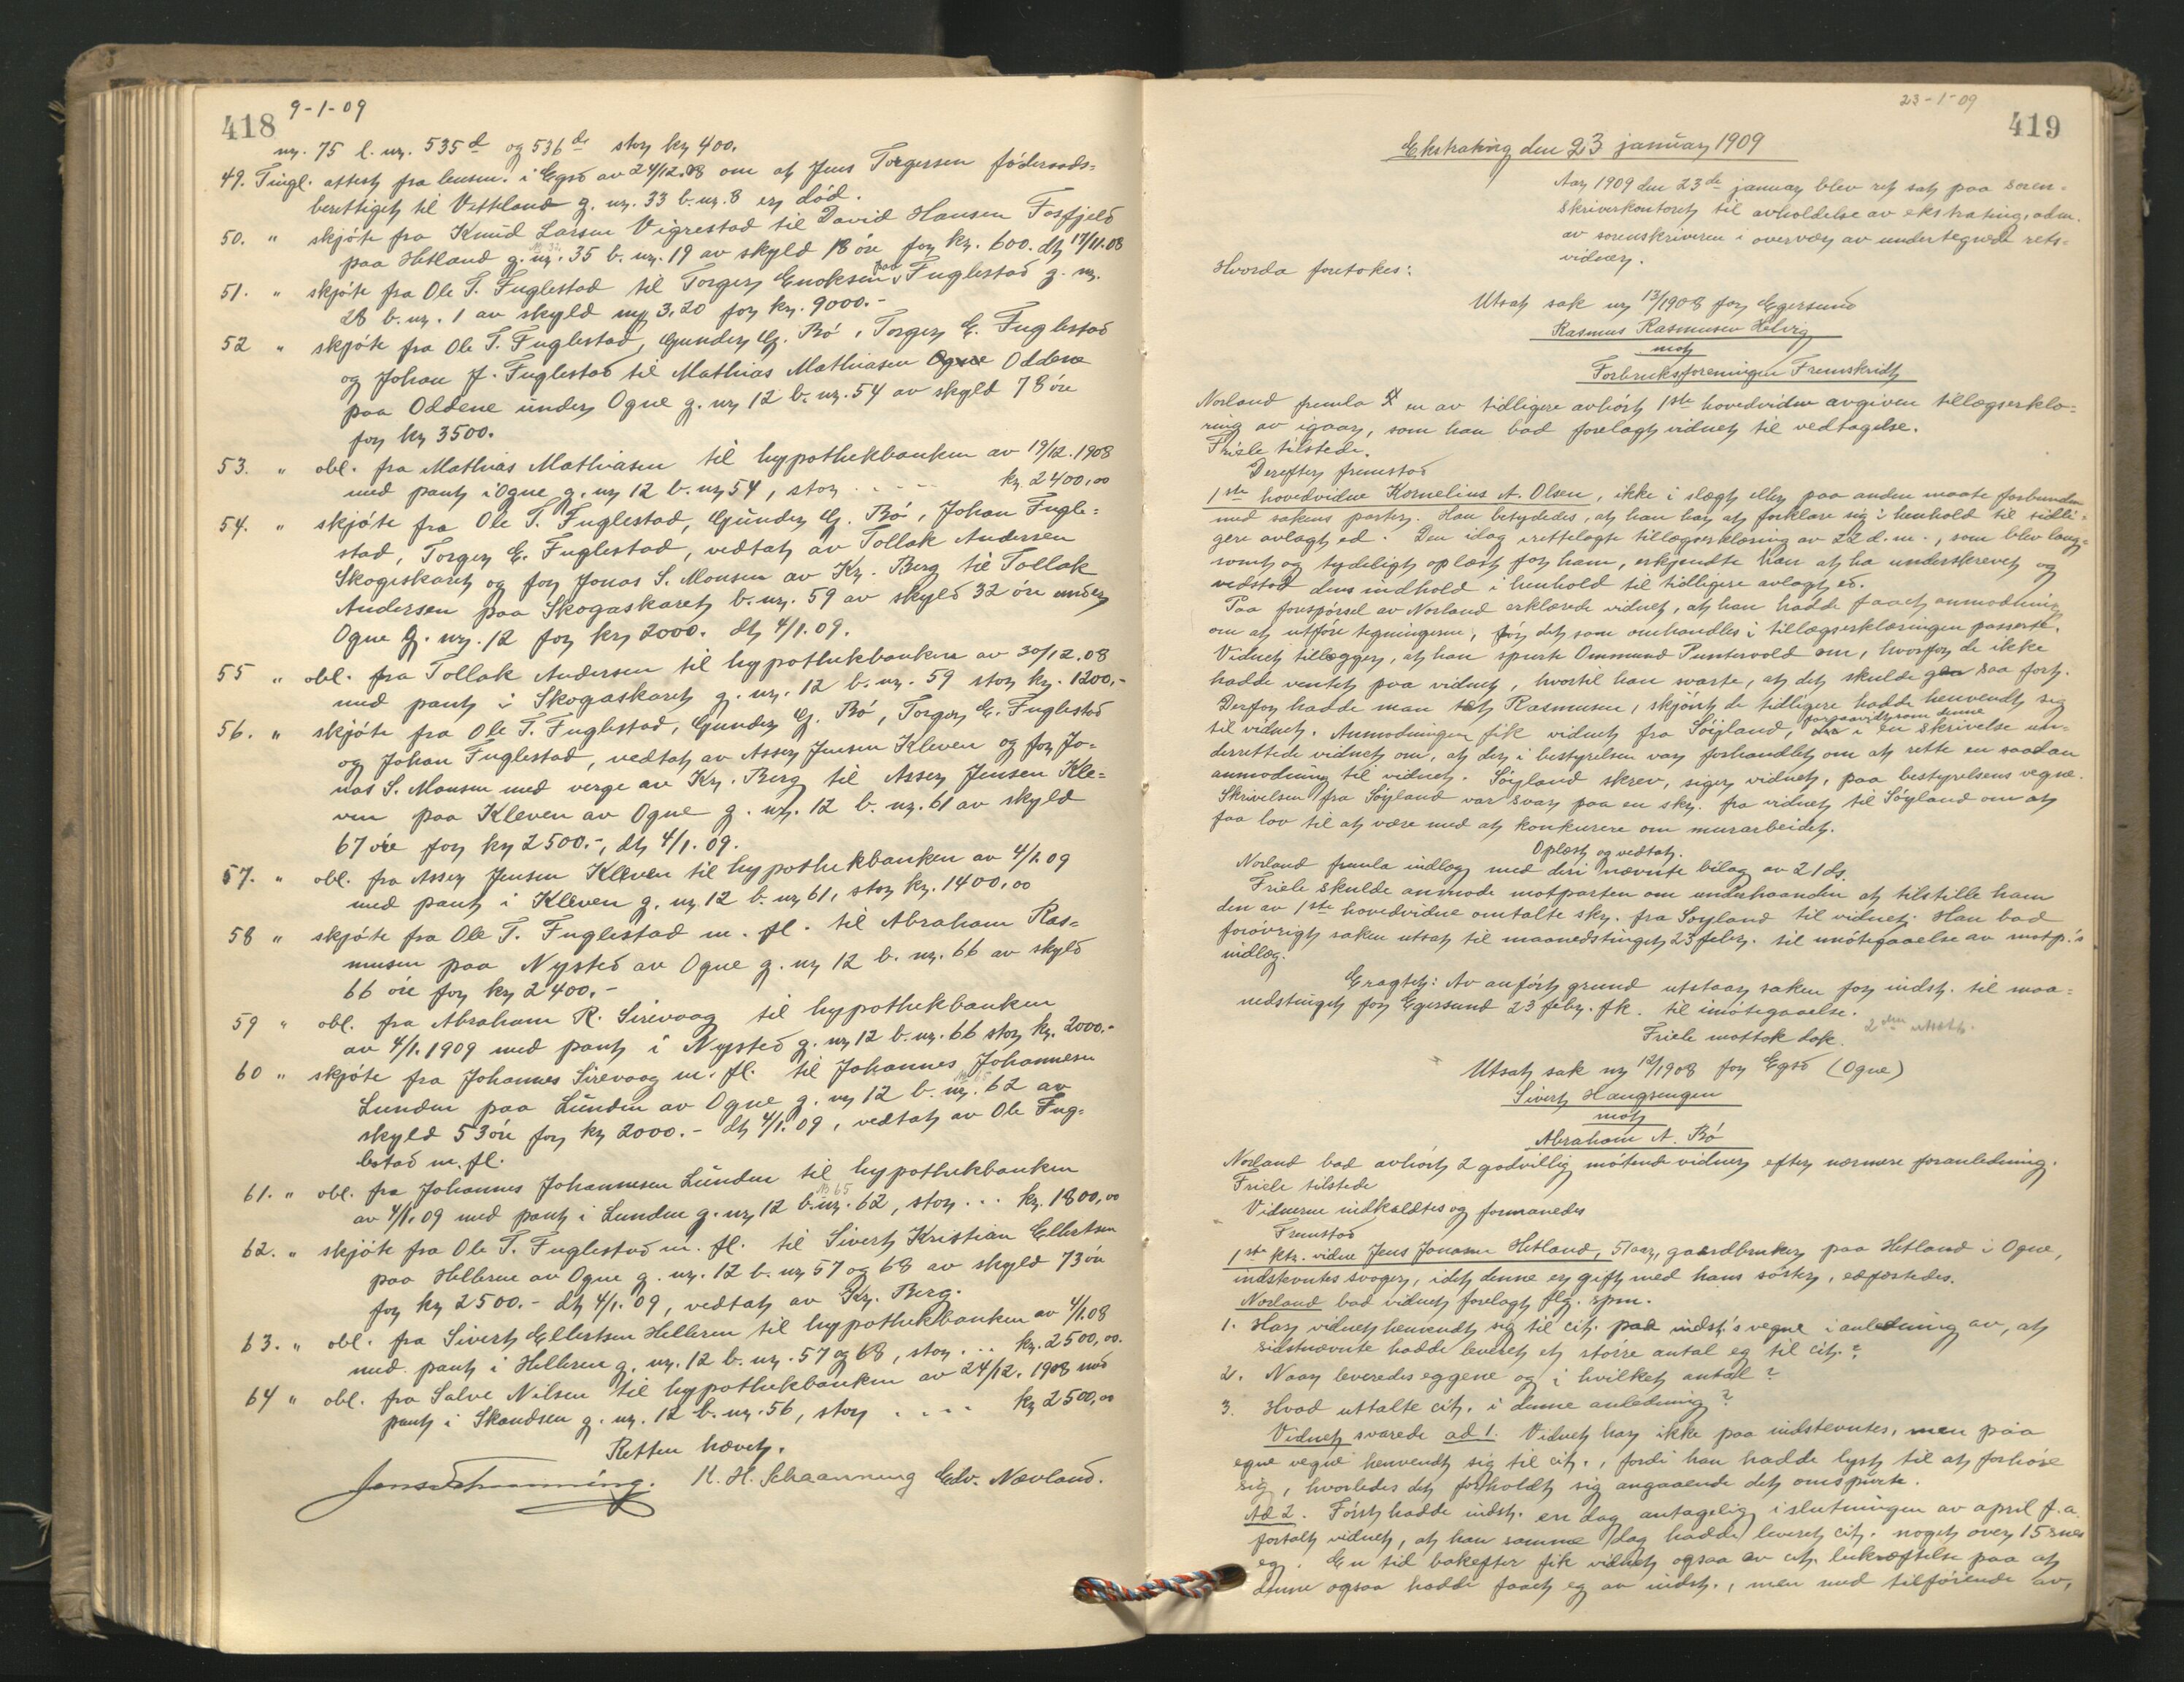 418
9-1-09
nr. 75 l. nr. 535 d og 536 d stor kr 400.
49. Tingl. attest fra lensm. i Egsd av 24/12.08 om at Jens Torgersen föderaads-
berettiget til Vetteland g. nr. 33 b. nr. 8 er död.
50. " skjöte fra Knud Larsen Vigrestad til David Hansen Fosfjeld
paa Hetland g. nr. 35 b. nr. 19 av skyld 18 öre for kr. 600. dt 17/11.08
51. " skjöte fra Ole T. Fuglestad til Torger Enoksen paa Fuglestad g. nr.
28 b. nr. 1 av skyld mrk 3,20 for kr. 9000.-
52 " skjöte fra Ole T. Fuglestad, Gunder G. Bö, Torger E. Fuglestad
og Johan J. Fuglestad til Mathias Mathiasen Ogne Oddene
paa Oddene under Ogne g. nr 12 b. nr. 54 av skyld 78 öre
for kr 3500.
53. " obl. fra Mathias Mathiasen til hypothekbanken av 19/12.1908
med pant i Ogne g. nr 12 b. nr 54, stor - - - - kr. 2400,00
54. " skjöte fra Ole T. Fuglestad, Gunder G. Bö, Johan Fugle-
stad, Torger E. Fuglestad, vedtat av Tollak Andersen
Skogaskaret og for Jonas S. Monsen av Kr. Berg til Tollak
Andersen paa Skogaskaret b. nr. 59 av skyld 32 öre under
Ogne g. nr. 12 for kr 2000. dt 4/1.09.
55 " obl. fra Tollak Andersen til hypothekbanken av 30/12.08
med pant i Skogaskaret g. nr. 12 b. nr. 59 stor kr. 1200,-
56. " skjöte fra Ole T. Fuglestad, Gunder G. Bö, Torger E. Fuglestad
og Johan Fuglestad, vedtat av Asser Jensen Kleven og for Jo-
nas S. Monsen med verge av Kr. Berg til Asser Jensen Kle-
ven paa Kleven av Ogne g. nr. 12 b. nr. 61 av skyld
67 öre for kr 2500.-, dt 4/1.09.
57. " obl. fra Asser Jensen Kleven til hypothekbanken av 4/1.09
med pant i Kleven g. nr 12 b. nr 61, stor kr. 1400,00
58 " skjöte fra Ole T. Fuglestad m. fl. til Abraham Ras-
musen paa Nysted av Ogne g. nr 12 b. nr. 66 av skyld
66 öre for kr 2400.-
59 " obl. fra Abraham R. Sirevaag til hypothekbanken
av 4/1.1909 med pant i Nysted g. nr 12 b. nr. 66 stor kr. 2000.-
60 " skjöte fra Johannes Sirevaag m. fl. til Johannes Johannesen
Lunden paa Lunden av Ogne g. nr 12 b. nr. 62 av
skyld 53 öre for kr 2000.- dt 4/1.09, vedtat av Ole Fug-
lestad m. fl.
61. " obl. fra Johannes Johannesen Lunden til hypothekbanken
av 4/1.09 med pant i Lunden g. nr 12 b. nr. 62, stor ... kr. 1800,00
62. " skjöte fra Ole T. Fuglestad m. fl. til Sivert Kristian Ellertsen
paa Helleren av Ogne g. nr. 12 b. nr 57 og 68 av skyld 73 öre
for kr 2500.- dt 4/1.09, vedtat av Kr. Berg.
63. " obl. fra Sivert Ellertsen Helleren til hypothekbanken av 4/1.08
med pant i Helleren g. nr. 12 b. nr. 57 og 68, stor ... kr. 2500,00.
64 " obl. fra Salve Nilsen til hypothekbanken av 24/12. 1908 med
pant i Skandsen g. nr. 12 b. nr. 56, stor . . . . kr 2500,00
Retten hævet.
K. H. Schaanning Edv. Nævland.
23-1-09
419
Ekstrating den 23 januar 1909
Aar 1909 den 23de januar blev ret sat paa soren-
skriverkontoret til avholdelse av ekstrating, adm.
av sorenskriveren i overvær av undertegnede rets-
vidner.
Hvorda foretokes:
Utsat sak nr 13/1908 for Egersund
Rasmus Rasmusen Helvig
mot
Forbruksforeningen Fremskridt
Norland fremla en av tidligere avhört 1ste hovedvidne avgiven tillægserklæ-
ring av igaar, som han bad forelagt vidnet til vedtagelse.
Friele tilstede.
Derefter fremstod
1ste hovedvidne Kornelius A. Olsen, ikke i slegt eller paa anden maate forbunden
med sakens parter. Han betydedes, at han har at forklare sig i henhold til tidli-
gere avlagt ed. Den idag irettelagte tillægserklæring av 22 d. m., som blev lang-
somt og tydeligt oplæst for ham, erkjendte han at ha underskrevet og
vedstod dens indhold i henhold til tidligere avlagt ed.
Paa forespörsel av Norland erklærede vidnet, at han hadde faaet anmodning
om at utföre tegningerne, för det som omhandles i tillægserklæringen passerte.
Vidnet tillægger, at han spurte Ommund Puntervold om, hvorfor de ikke
hadde ventet paa vidnet, hvortil han svarte, at det skulde gaa saa fort.
Derfor hadde man tat Rasmusen, skjönt de tidligere hadde henvendt sig
til vidnet. Anmodningen fik vidnet fra Söyland, forsaavidt som denne i en skrivelse un-
derrettede vidnet om, at der i bestyrelsen var forhandlet om at rette en saadan
anmodning til vidnet. Söyland skrev, siger vidnet, paa bestyrelsens vegne.
Skrivelsen fra Söyland var svar paa en skr. fra vidnet til Söyland om at
faa lov til at være med at konkurere om murarbeidet.
Oplæst og vedtat.
Norland fremla indlæg med deri nævnte bilag av 21 ds.
Friele skulde anmode motparten om underhaanden at tilstille ham
den av 1ste hovedvidne omtalte skr. fra Soyland til vidnet. Han bad
forövrigt saken utsat til maanedstinget 23 febr. til imötegaaelse av motp.'s
indlæg.
Eragtet: Av anfört grund utstaar saken for indst. til maa-
nedstinget for Egersund 23 febr. fk. til imötegaaelse.
Friele mottok dok.
Utsat sak nr 12/1908 for Egsd (Ogne)
Sivert Haugsengen
mot
Abraham A. Bö
Norland bad avhört 2 godvillig mötende vidner efter nærmere foranledning.
Friele tilstede
Vidnerne indkaldtes og formanedes
Fremstod
1ste ktr. vidne Jens Jonasen Hetland, 51 aar, gaardbruker paa Hetland i Ogne,
indstevntes svoger, idet denne er gift med hans söster, edfæstedes.
Norland bad vidnet forelagt flg. spm.
1. Har vidnet henvendt sig til cit. paa indst.'s vegne i anledning av, at
sidstnævnte hadde leveret et större antal eg til cit.?
2. Naar leveredes eggene og i hvilket antal?
3. Hvad uttalte cit. i denne anledning?
Vidnet svarede ad 1. Vidnet har ikke paa indstevntes, men paa
egne vegne henvendt sig til cit., fordi han hadde lyst til at forhöre
sig, hvorledes det forholdt sig angaaende det omspurte.
Ad 2. Först hadde indst. en dag antagelig i slutningen av april f. a.
fortalt vidnet, at han samme dag hadde leveret cit. noget over 15 snes
eg. En tid bakefter fik vidnet ogsaa av cit. bekræftelse paa at
denne ogsaa hadde faaet eg av indst., men med tilföiende av,